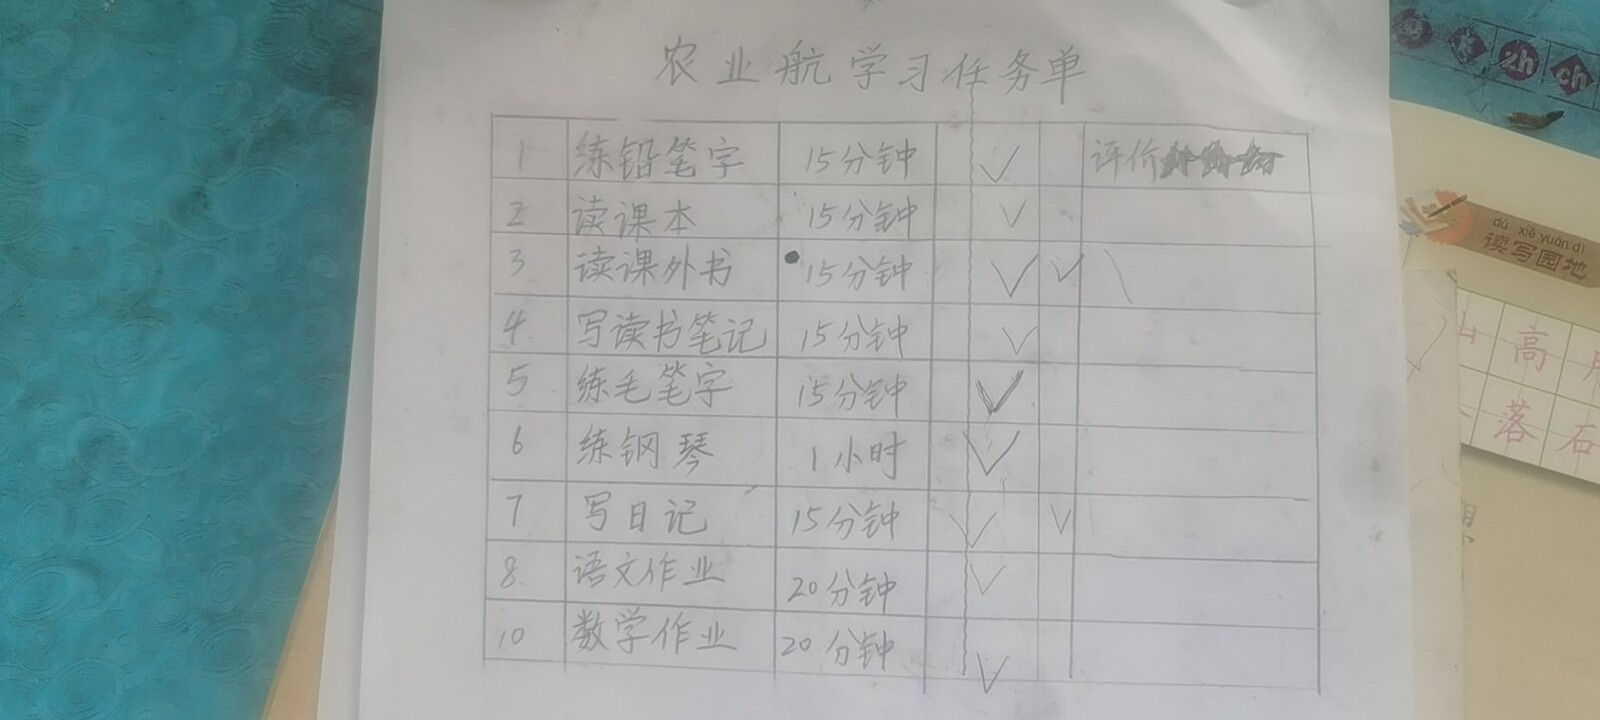 农业航学习任务单
1 练铅笔字 15分钟 ✓ 评价
2 读课本 15分钟 ✓
3 读课外书 15分钟 ✓ ✓
4. 写读书笔记 15分钟 ✓
5 练毛笔字 15分钟 ✓
6 练钢琴 1小时 ✓
7 写日记 15分钟 ✓ ✓
8. 语文作业 20分钟 ✓
10 数学作业 20分钟 ✓
zh ch
dú xiě yuán dì
读写园地
山 高 月
落 石